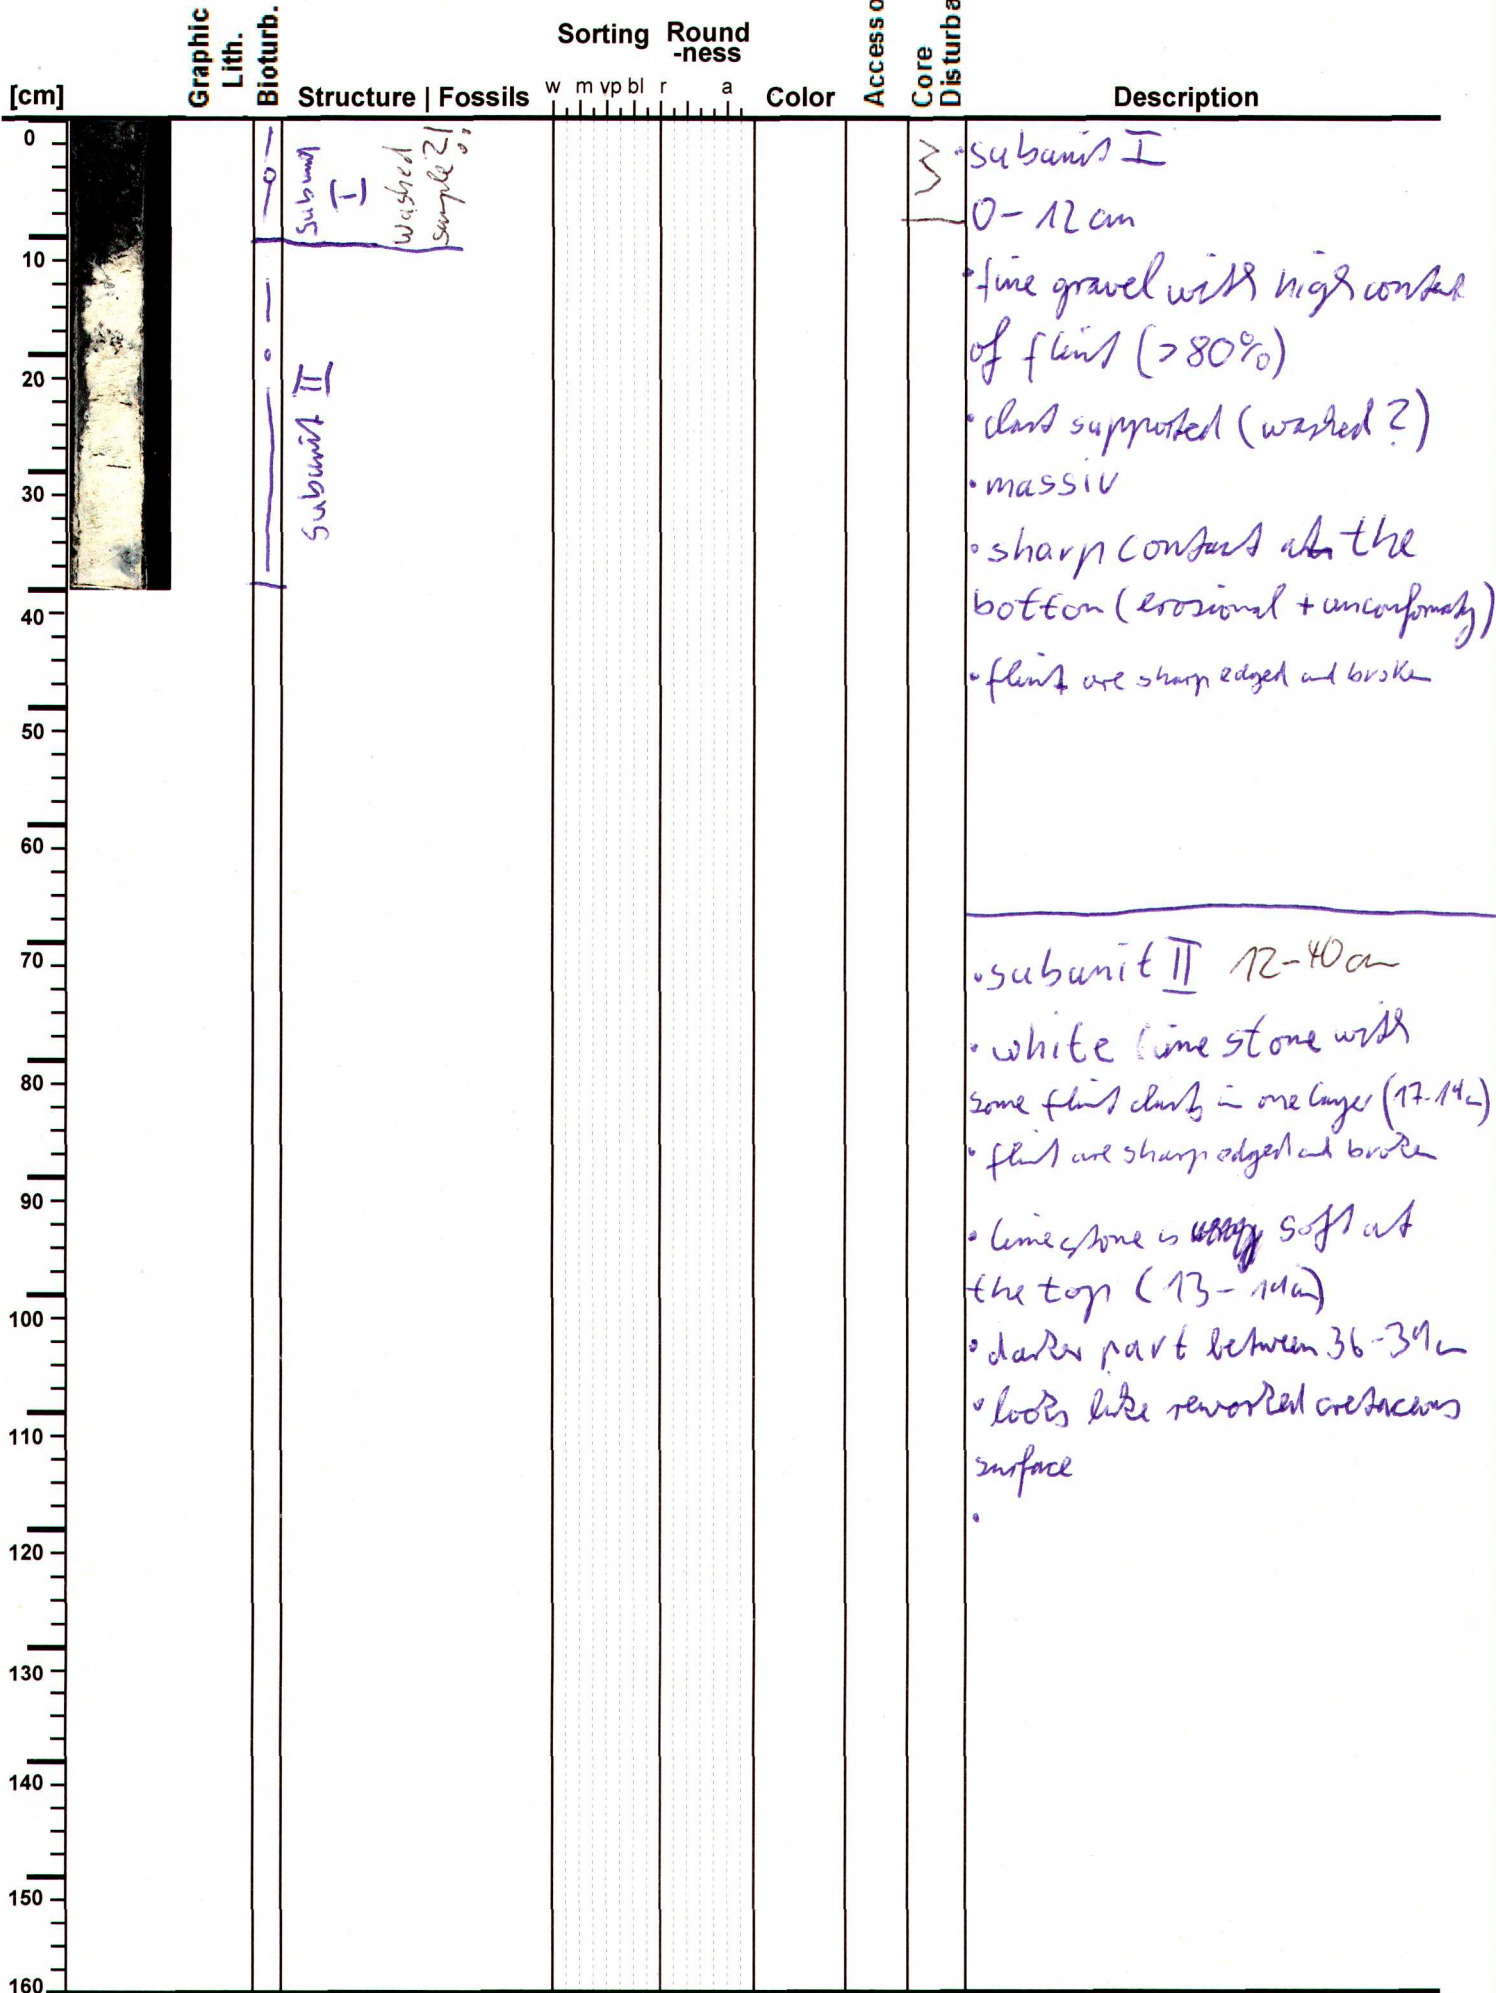 Graphic Lith.
Bioturb.
Sorting
Round -ness
Accesso
Core Disturba
[cm]
Structure | Fossils
w m vp bl r a
Color
Description
0
10
20
30
40
50
60
70
80
90
100
110
120
130
140
150
160
Subunit
I
washed
sample ?!
Subunit II
•subunit I
0-12 cm
•fine gravel with high content
of flint (>80%)
•clast supported (washed?)
•massiv
•sharp contact at the
bottom (erosional + unconformaty)
•flint are sharp edged and broken
•subunit II 12-40 cm
•white limestone with
some flint clasts in one layer
•flint are sharp edged and broken
•limestone is soft at
the top
•darker part between 36-39 cm
•looks like reworked cretaceous
surface
•